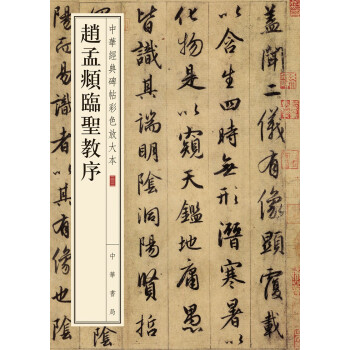 趙孟頫臨聖教序
中華經典碑帖彩色放大本
中華書局
蓋聞二儀有像顯覆載
以含生四時無形潛寒暑以
化物是以窺天鑑地庸愚
皆識其端明陰洞陽賢哲
陽而易識者以其有像也陰